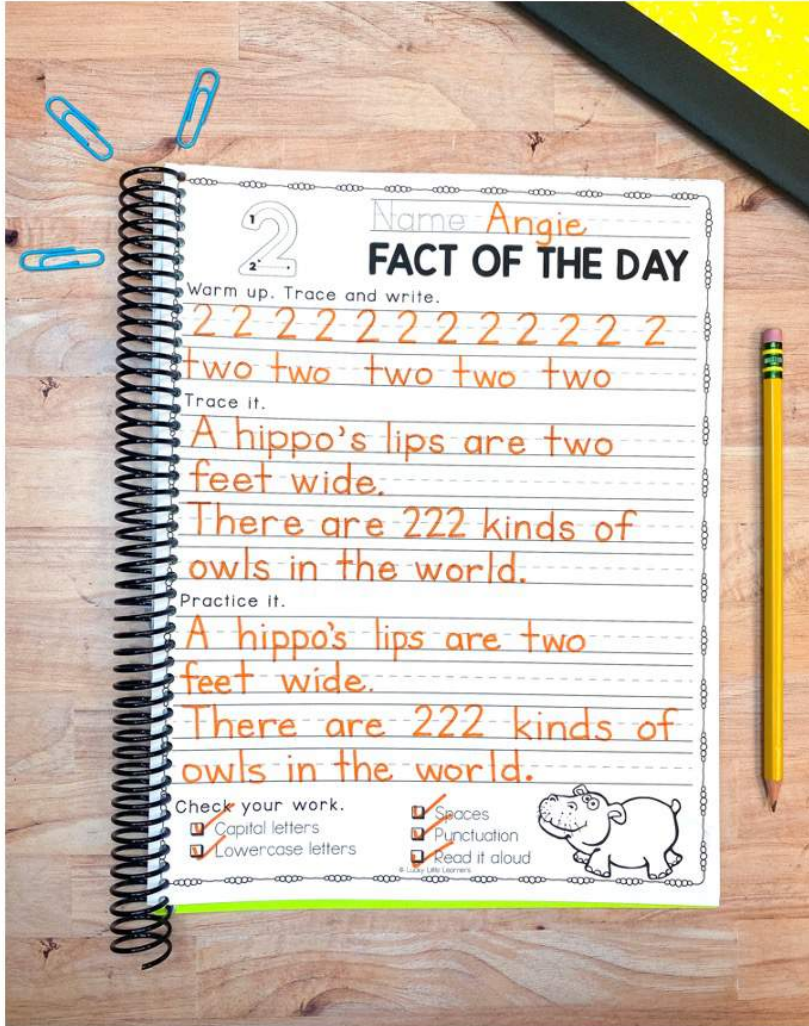 Name Angie
2
1
2
FACT OF THE DAY
Warm up. Trace and write.
2 2 2 2 2 2 2 2 2 2 2 2
two two two two two
Trace it.
A hippo's lips are two
feet wide.
There are 222 kinds of
owls in the world.
Practice it.
A hippo's lips are two
feet wide.
There are 222 kinds of
owls in the world.
Check your work.
Capital letters
Lowercase letters
Spaces
Punctuation
Read it aloud
© Lucky Little Learners